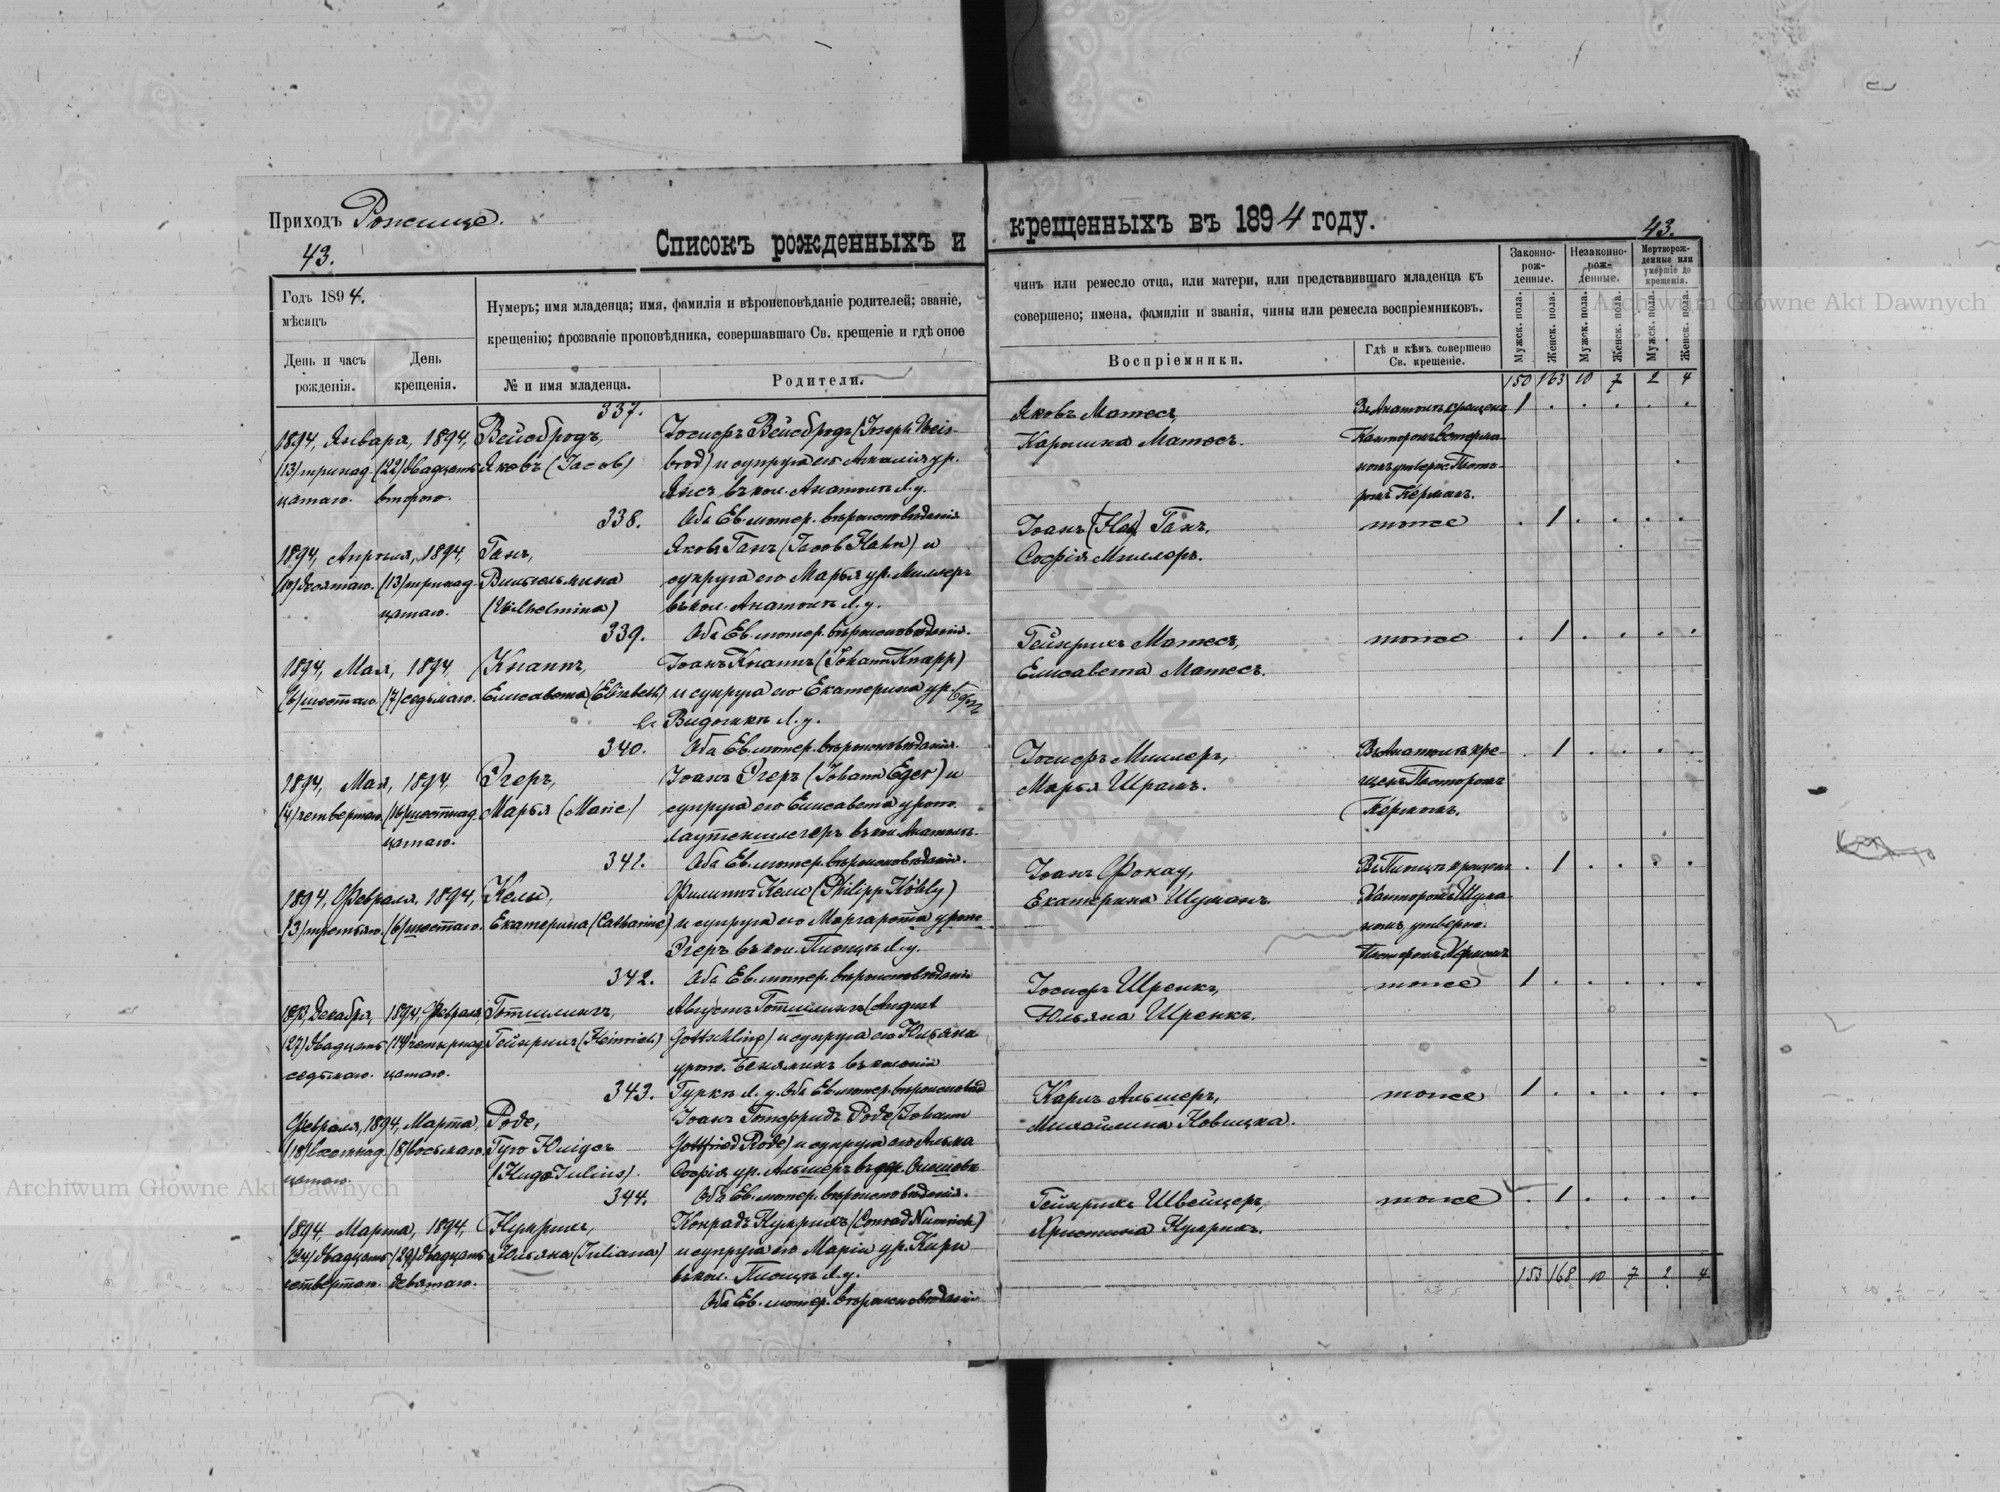 Приходъ Рожище.
43.
Списокъ рожденныхъ и
крещенныхъ въ 1894 году.
43.
Годъ 1894.
мѣсяцъ
День и часъ
рожденія.
День
крещенія.
Нумеръ; имя младенца; имя, фамилія и вѣроисповѣданіе родителей; званіе,
крещенію; прозваніе проповѣдника, совершавшаго Св. крещеніе и гдѣ оное
№ и имя младенца.
Родители.
чинъ или ремесло отца, или матери, или представившаго младенца къ
совершено; имена, фамиліи и званія, чины или ремесла воспріемниковъ.
Воспріемники.
Гдѣ и кѣмъ совершено
Св. крещеніе.
Законно-
рож-
денные.
Незаконно-
рож-
денные.
Мертворож-
денные или
умершіе до
крещенія.
Мужск. пола.
Женск. пола.
Мужск. пола.
Женск. пола.
Мужск. пола.
Женск. пола.
150 163 10 7 2 4
337.
1894, Января, 1894,
(13) тринад- (22) двадцать
цатаго. втораго.
Вейсбродъ,
Яковъ (Jacob)
Іосифъ Вейсбродъ (Joseph Weis-
brod) и супруга его Амалія ур.
въ кол. Анатолъ Л. у.
Оба Ев. лютер. вѣроисповѣданія
Яковъ Матесъ,
Каролина Матесъ.
Въ Анатолѣ крещенъ
Канторомъ
утверж. Пасто-
ромъ Кермомъ.
1 . . . . .
338.
1894, Апрѣля, 1894,
(13) тринад-
цатаго.
Ганъ,
Вильгельмина
(Wilhelmina)
Яковъ Ганъ (Jacob Hahn) и
супруга его Марья ур. Миллеръ
въ кол. Анатолѣ Л. у.
Оба Ев. лютер. вѣроисповѣданія.
Іоанъ Ганъ,
Софія Миллеръ.
тоже
. 1 . . . .
339.
1894, Мая, 1894,
(6) шестаго. (7) седьмаго.
Кнаппъ,
Елисавета (Elisabeth)
Іоанъ Кнаппъ (Johann Knapp)
и супруга его Екатерина ур.
Л. у.
Оба Ев. лютер. вѣроисповѣданія.
Гейнрихъ Матесъ,
Елисавета Матесъ.
тоже
. 1 . . . .
340.
1894, Мая, 1894,
(4) четвертаго. (16) шестнад-
цатаго.
Эгеръ,
Марья (Marie)
Іоанъ Эгеръ (Johann Eger) и
супруга его Елисавета урож.
Лаутеншлегеръ въ кол. Анатолъ.
Оба Ев. лютер. вѣроисповѣданія.
Іосифъ Миллеръ,
Марья Шрамъ.
Въ Анатолѣ кре-
щенъ Пасторомъ
Керномъ.
. 1 . . . .
341.
1894, Февраля, 1894,
(3) третьяго. (6) шестаго.
Кели,
Екатерина (Catharine)
Филиппъ Кели (Philipp Köhly)
и супруга его Маргарета урож.
Эгеръ въ кол. Л. у.
Оба Ев. лютер. вѣроисповѣданія
Іоанъ Фокау,
Екатерина Шуманъ
крещенъ
Канторомъ Шума-
номъ, утвержд.
Пасторомъ
. 1 . . . .
342.
1893, Декабря, 1894, Февраля
(27) двадцать (14) четырнад-
седьмаго. цатаго.
Готшлингъ,
Гейнрихъ (Heinrich)
Августъ Готшлингъ (August
Gottschling) и супруга его Юльяна
урож. въ колоніи
Гуркѣ Л. у. Оба Ев. лютер. вѣроисповѣд.
Іосифъ Шренкъ,
Юльяна Шренкъ.
тоже
1 . . . . .
343.
Февраля, 1894, Марта
(18) восемнад- (8) восьмаго.
цатаго.
Роде,
Гуго Юліусъ
(Hugo Julius).
Іоанъ Готфридъ Роде (Johann
Gottfried Rode) и супруга его Анна
Софія ур. Альшеръ въ дер.
Оба Ев. лютер. вѣроисповѣданія.
Карлъ Альшеръ,
Михайлина Новицка.
тоже
1 . . . . .
344.
1894, Марта, 1894,
(24) двадцать (29) двадцать
четвертаго. девятаго.
Нумрихъ,
Юльяна (Juliana)
Конрадъ Нумрихъ (Conrad Numrich)
и супруга его Марія ур.
въ кол. Л. у.
Оба Ев. лютер. вѣроисповѣданія
Гейнрихъ Швейцеръ,
Христина Нумрихъ.
тоже
. 1 . . . .
153 168 10 7 2 4
Archiwum Główne Akt Dawnych
Archiwum Główne Akt Dawnych